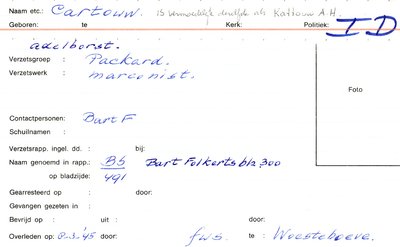 Naam etc.: Cartouw. is vermoedelijk dezelfde als Kattouw A.H.
Geboren: te Kerk: Politiek: ID
adelborst.
Verzetsgroep : Packard.
Verzetswerk : marconist.
Foto
Contactpersonen: Bart F
Schuilnamen :
Verzetsrapp. ingel. dd. : bij:
Naam genoemd in rapp.: B5 Bart Folkerts blz 300
op bladzijde: 491
Gearresteerd op : door:
Gevangen gezeten in :
Bevrijd op : uit : door:
Overleden op: 8-3.'45 door: fus. te : Woestehoeve.